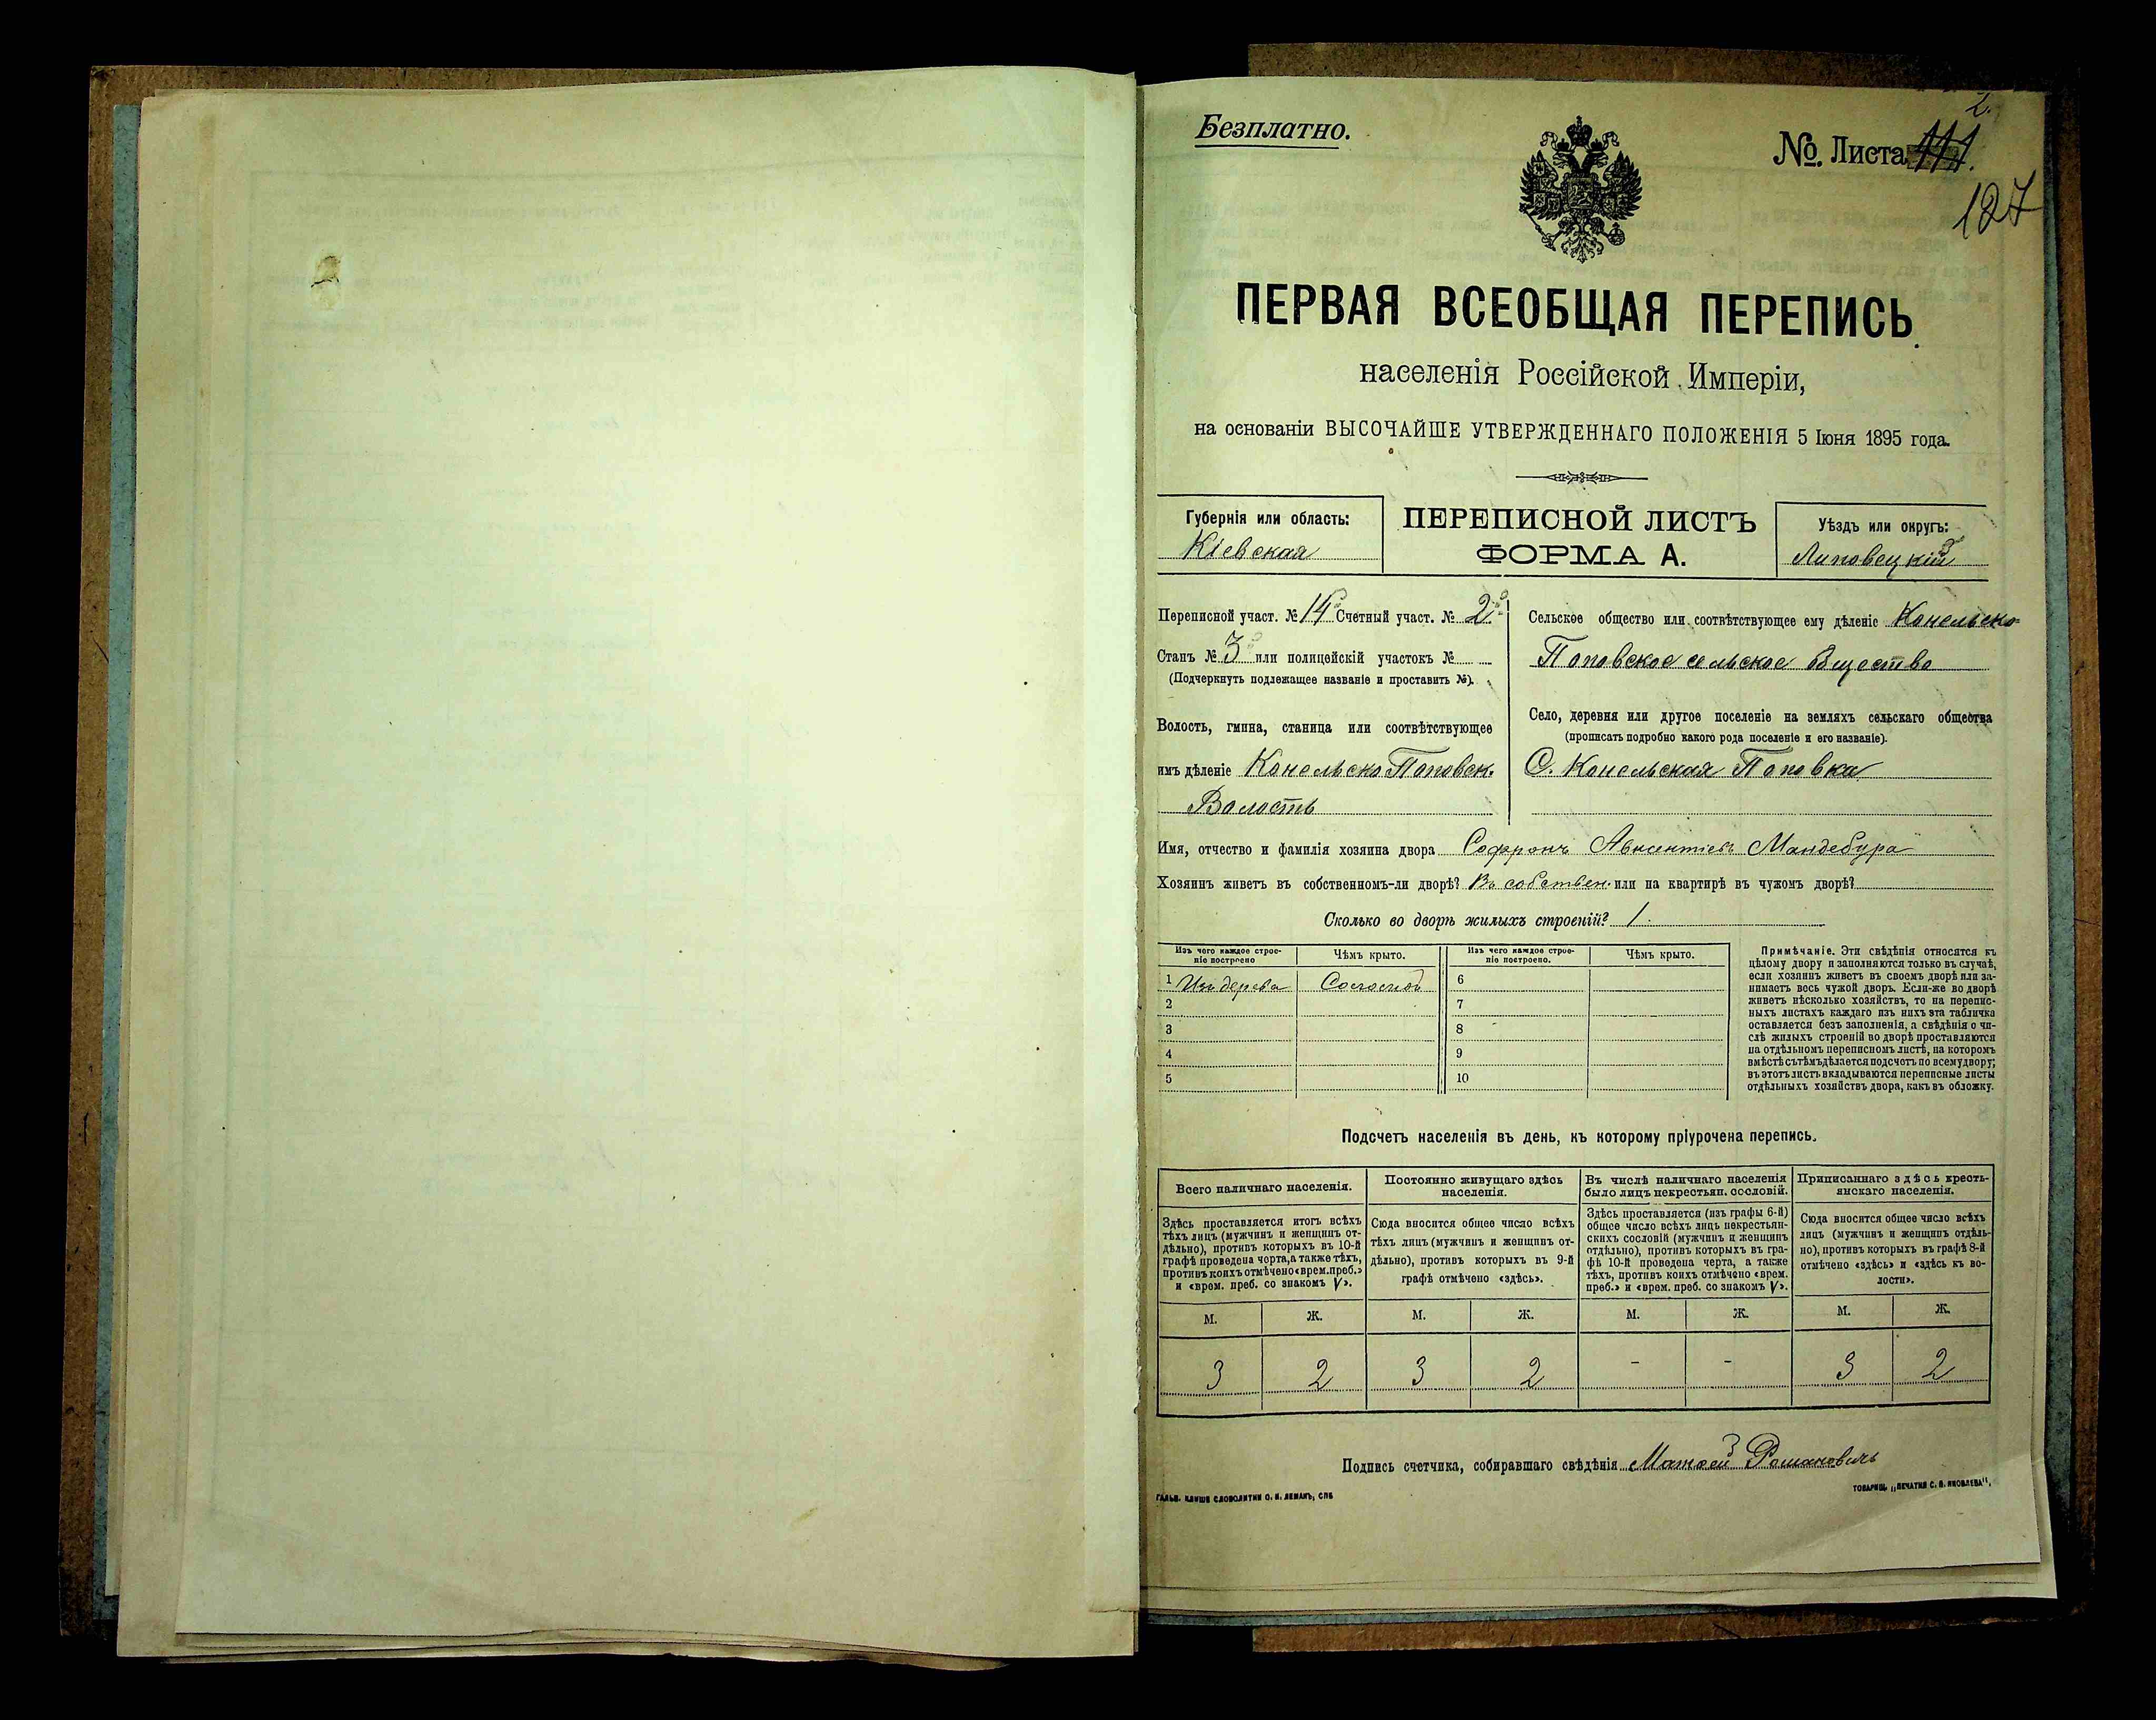 2.
Безплатно.
№. Листа 111.
127
ПЕРВАЯ ВСЕОБЩАЯ ПЕРЕПИСЬ
населенія Россійской Имперіи,
на основаніи ВЫСОЧАЙШЕ УТВЕРЖДЕННАГО ПОЛОЖЕНІЯ 5 Іюня 1895 года.
Губернія или область:
Кіевская
ПЕРЕПИСНОЙ ЛИСТЪ
ФОРМА А.
Уѣздъ или округъ:
Липовецкій
Переписной участ. № 14 Счетный участ. № 2
Станъ № 3 или полицейскій участокъ №
(Подчеркнуть подлежащее названіе и проставить №).
Волость, гмина, станица или соотвѣтствующее
имъ дѣленіе Конельско Поповск.
Волость
Сельское общество или соотвѣтствующее ему дѣленіе Конельско-
Поповское сельское общество
Село, деревня или другое поселеніе на земляхъ сельскаго общества
(прописать подробно какого рода поселеніе и его названіе).
С. Конельская Поповка
Имя, отчество и фамилія хозяина двора Софронъ Авксентіевъ Мандебура
Хозяинъ живетъ въ собственномъ-ли дворѣ? Въ собствен. или на квартирѣ въ чужомъ дворѣ?
Сколько во дворѣ жилыхъ строеній? 1.
Изъ чего каждое строе-
ніе построено
Чѣмъ крыто.
Изъ чего каждое строе-
ніе построено.
Чѣмъ крыто.
1 Изъ дерева Соломой 6
2 7
3 8
4 9
5 10
Примѣчаніе. Эти свѣдѣнія относятся къ
цѣлому двору и заполняются только въ случаѣ,
если хозяинъ живетъ въ своемъ дворѣ или за-
нимаетъ весь чужой дворъ. Если-же во дворѣ
живетъ нѣсколько хозяйствъ, то на перепис-
ныхъ листахъ каждаго изъ нихъ эта табличка
оставляется безъ заполненія, а свѣдѣнія о чи-
слѣ жилыхъ строеній во дворѣ проставляются
на отдѣльномъ переписномъ листѣ, на которомъ
вмѣстѣ съ тѣмъ дѣлается подсчетъ по всему двору;
въ этотъ листъ вкладываются переписные листы
отдѣльныхъ хозяйствъ двора, какъ въ обложку.
Подсчетъ населенія въ день, къ которому пріурочена перепись.
Всего наличнаго населенія.
Здѣсь проставляется итогъ всѣхъ
тѣхъ лицъ (мужчинъ и женщинъ от-
дѣльно), противъ которыхъ въ 10-й
графѣ проведена черта, а также тѣхъ,
противъ коихъ отмѣчено «врем. преб.»
и «врем. преб. со знакомъ V».
Постоянно живущаго здѣсь
населенія.
Сюда вносится общее число всѣхъ
тѣхъ лицъ (мужчинъ и женщинъ от-
дѣльно), противъ которыхъ въ 9-й
графѣ отмѣчено «здѣсь».
Въ числѣ наличнаго населенія
было лицъ некрестьян. сословій.
Здѣсь проставляется (изъ графы 6-й)
общее число всѣхъ лицъ некрестьян-
скихъ сословій (мужчинъ и женщинъ
отдѣльно), противъ которыхъ въ гра-
фѣ 10-й проведена черта, а также
тѣхъ, противъ коихъ отмѣчено «врем.
преб.» и «врем. преб. со знакомъ V».
Приписаннаго здѣсь кресть-
янскаго населенія.
Сюда вносится общее число всѣхъ
лицъ (мужчинъ и женщинъ отдѣль-
но), противъ которыхъ въ графѣ 8-й
отмѣчено «здѣсь» и «здѣсь къ во-
лости».
М. Ж. М. Ж. М. Ж. М. Ж.
3 2 3 2 - - 3 2
Подпись счетчика, собиравшаго свѣдѣнія Матвей Романовичъ
ГАЛЬВ. КЛИШЕ СЛОВОЛИТНИ О. И. ЛЕМАНЪ, СПБ
ТОВАРИЩ. „ПЕЧАТНЯ С. П. ЯКОВЛЕВА".